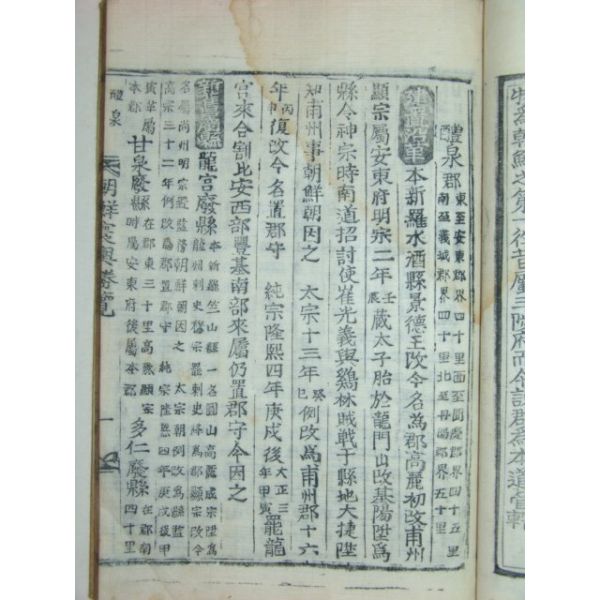 生爲朝鮮之第一從古屬三陟府而今諸郡爲本道官轄
醴泉郡 東至安東郡界四十里西至聞慶郡界四十五里
南至義城郡界四十里北至丹陽郡界五十里
建置沿革 本新羅水酒縣景德王改今名爲郡高麗初改甫州
顯宗屬安東府明宗二年壬辰藏太子胎於龍門山改基陽陞爲
縣令神宗時南道招討使崔光義與鷄林賊戰于縣地大捷陞
知甫州事朝鮮朝因之 太宗十三年癸巳例改爲甫州郡十六
年丙申復改今名置郡守 純宗隆熙四年庚戌後大正三年甲寅罷龍
宮來合割比安西部豐基南部來屬仍置郡守今因之
新舊屬縣 龍宮廢縣 本新羅竺山縣一名園山高麗成宗陞爲
龍州刺史穆宗罷刺史降爲郡縣宗改今
名屬尙州明宗置監務朝鮮因之 太宗朝例改爲縣監
高宗三十二年例改爲郡置郡守 純宗隆熙四年庚戌後甲
寅革屬本郡 甘泉廢縣 在郡東三十里高麗顯宗
時屬安東府後屬本郡 多仁廢縣 在郡南
四十里
醴泉
朝鮮寰輿勝覽
一